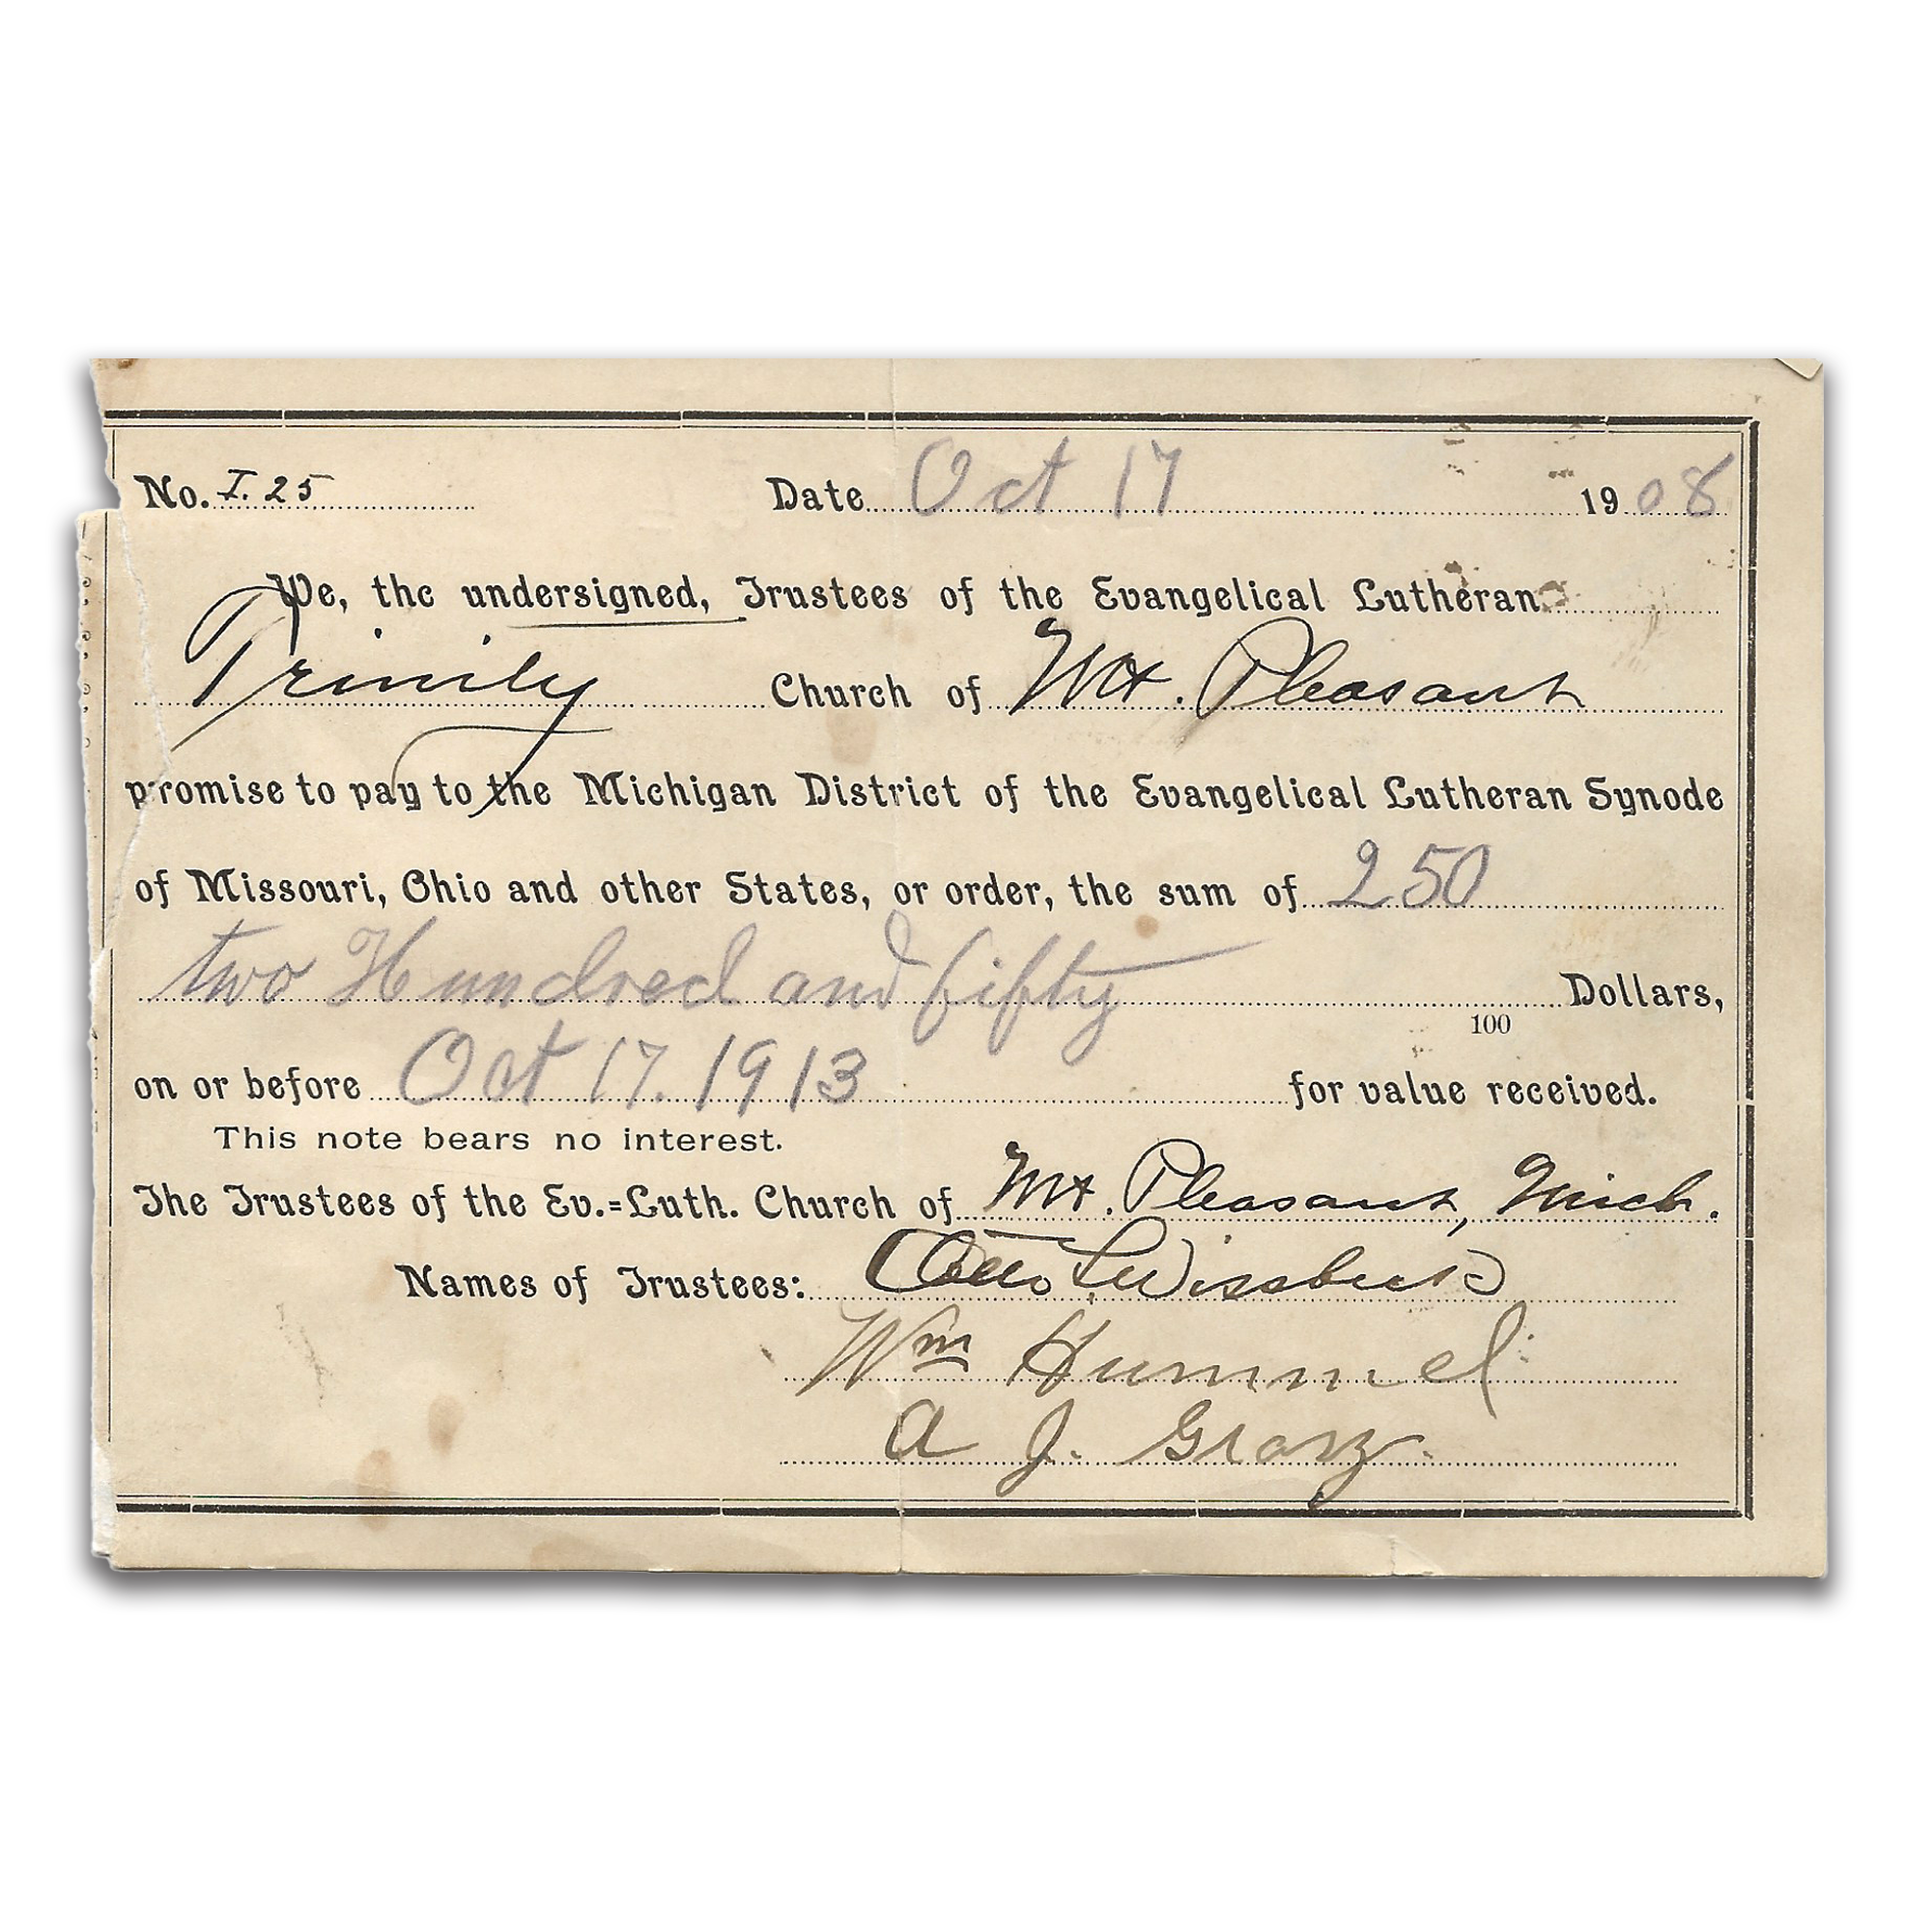 No. I. 25 Date Oct 17 1908
We, the undersigned, Trustees of the Evangelical Lutheran
Trinity Church of Mt. Pleasant
promise to pay to the Michigan District of the Evangelical Lutheran Synode
of Missouri, Ohio and other States, or order, the sum of 250
two Hundred and fifty Dollars,
100
on or before Oct 17. 1913 for value received.
This note bears no interest.
The Trustees of the Ev.=Luth. Church of Mt. Pleasant, Mich.
Names of Trustees: Otto
Wm Hummel
A J.